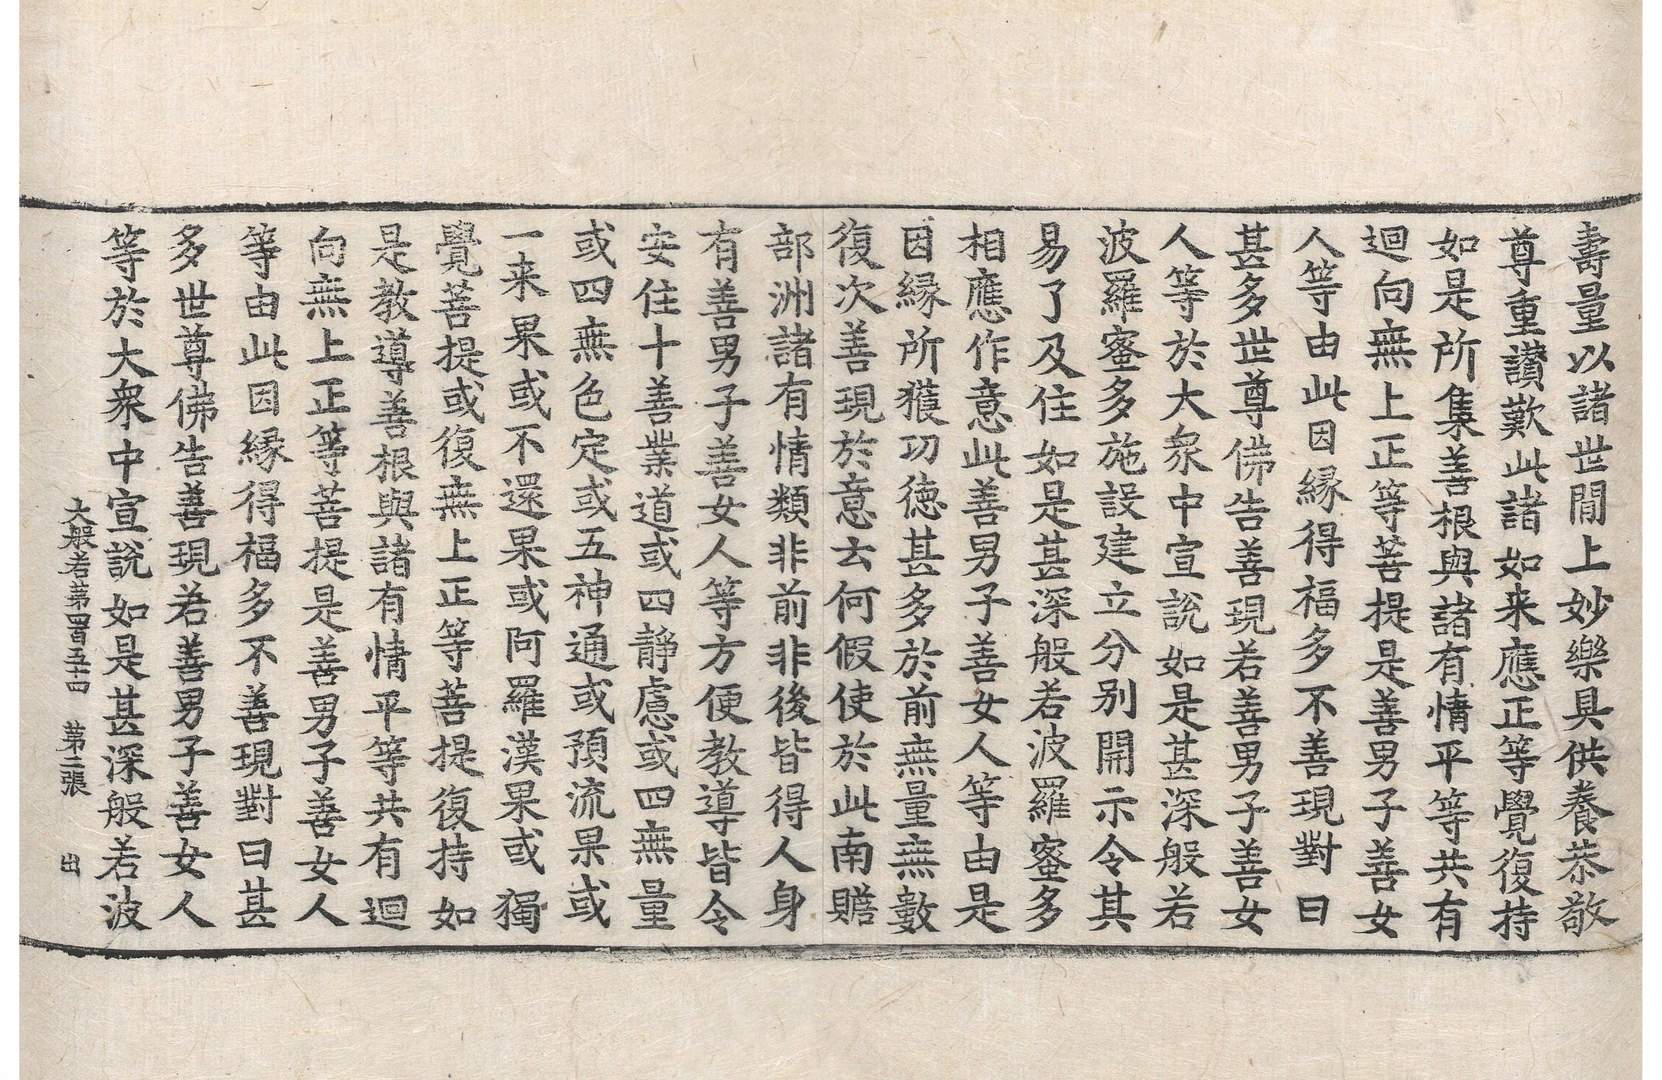 壽量以諸世間上妙樂具供養恭敬
尊重讃歎此諸如来應正等覺復持
如是所集善根與諸有情平等共有
迴向無上正等菩提是善男子善女
人等由此因縁得福多不善現對曰
甚多世尊佛告善現若善男子善女
人等於大衆中宣說如是甚深般若
波羅蜜多施設建立分別開示令其
易了及住如是甚深般若波羅蜜多
相應作意此善男子善女人等由是
因縁所獲功德甚多於前無量無數
復次善現於意云何假使於此南贍
部洲諸有情類非前非後皆得人身
有善男子善女人等方便教導皆令
安住十善業道或四靜慮或四無量
或四無色定或五神通或預流果或
一来果或不還果或阿羅漢果或獨
覺菩提或復無上正等菩提復持如
是教導善根與諸有情平等共有迴
向無上正等菩提是善男子善女人
等由此因縁得福多不善現對曰甚
多世尊佛告善現若善男子善女人
等於大衆中宣說如是甚深般若波
大般若第四百五十四 第二張 出